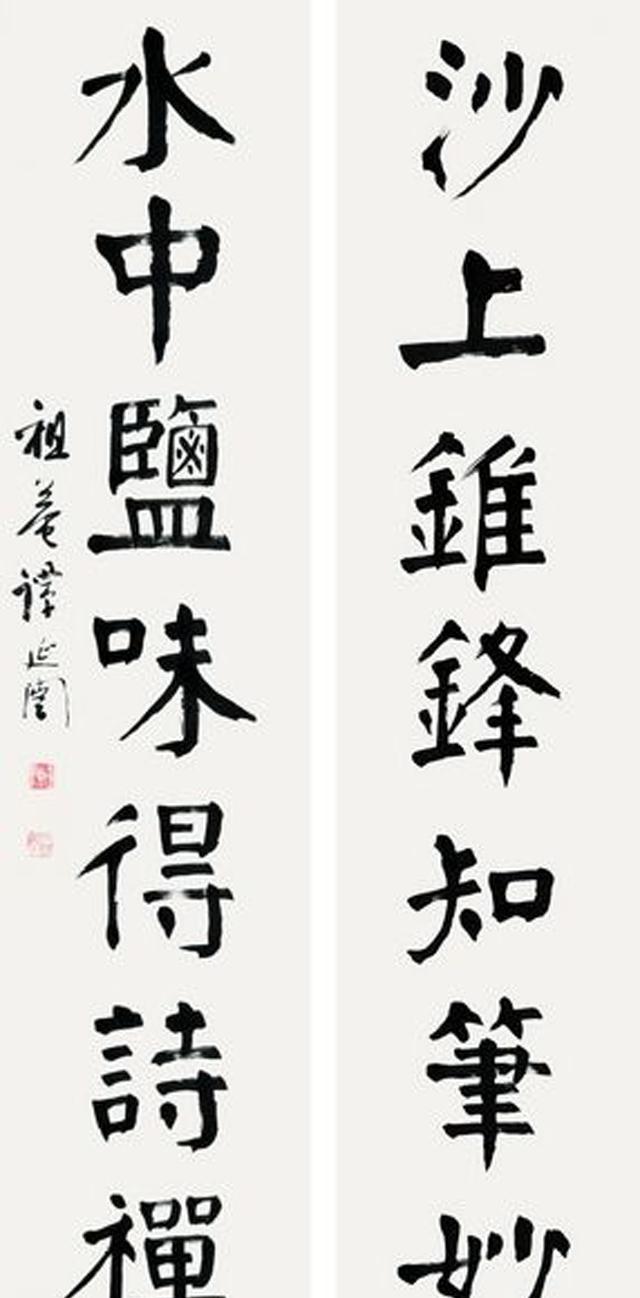 沙上錐鋒知筆妙
水中鹽味得詩禪
祖菴譚延闓